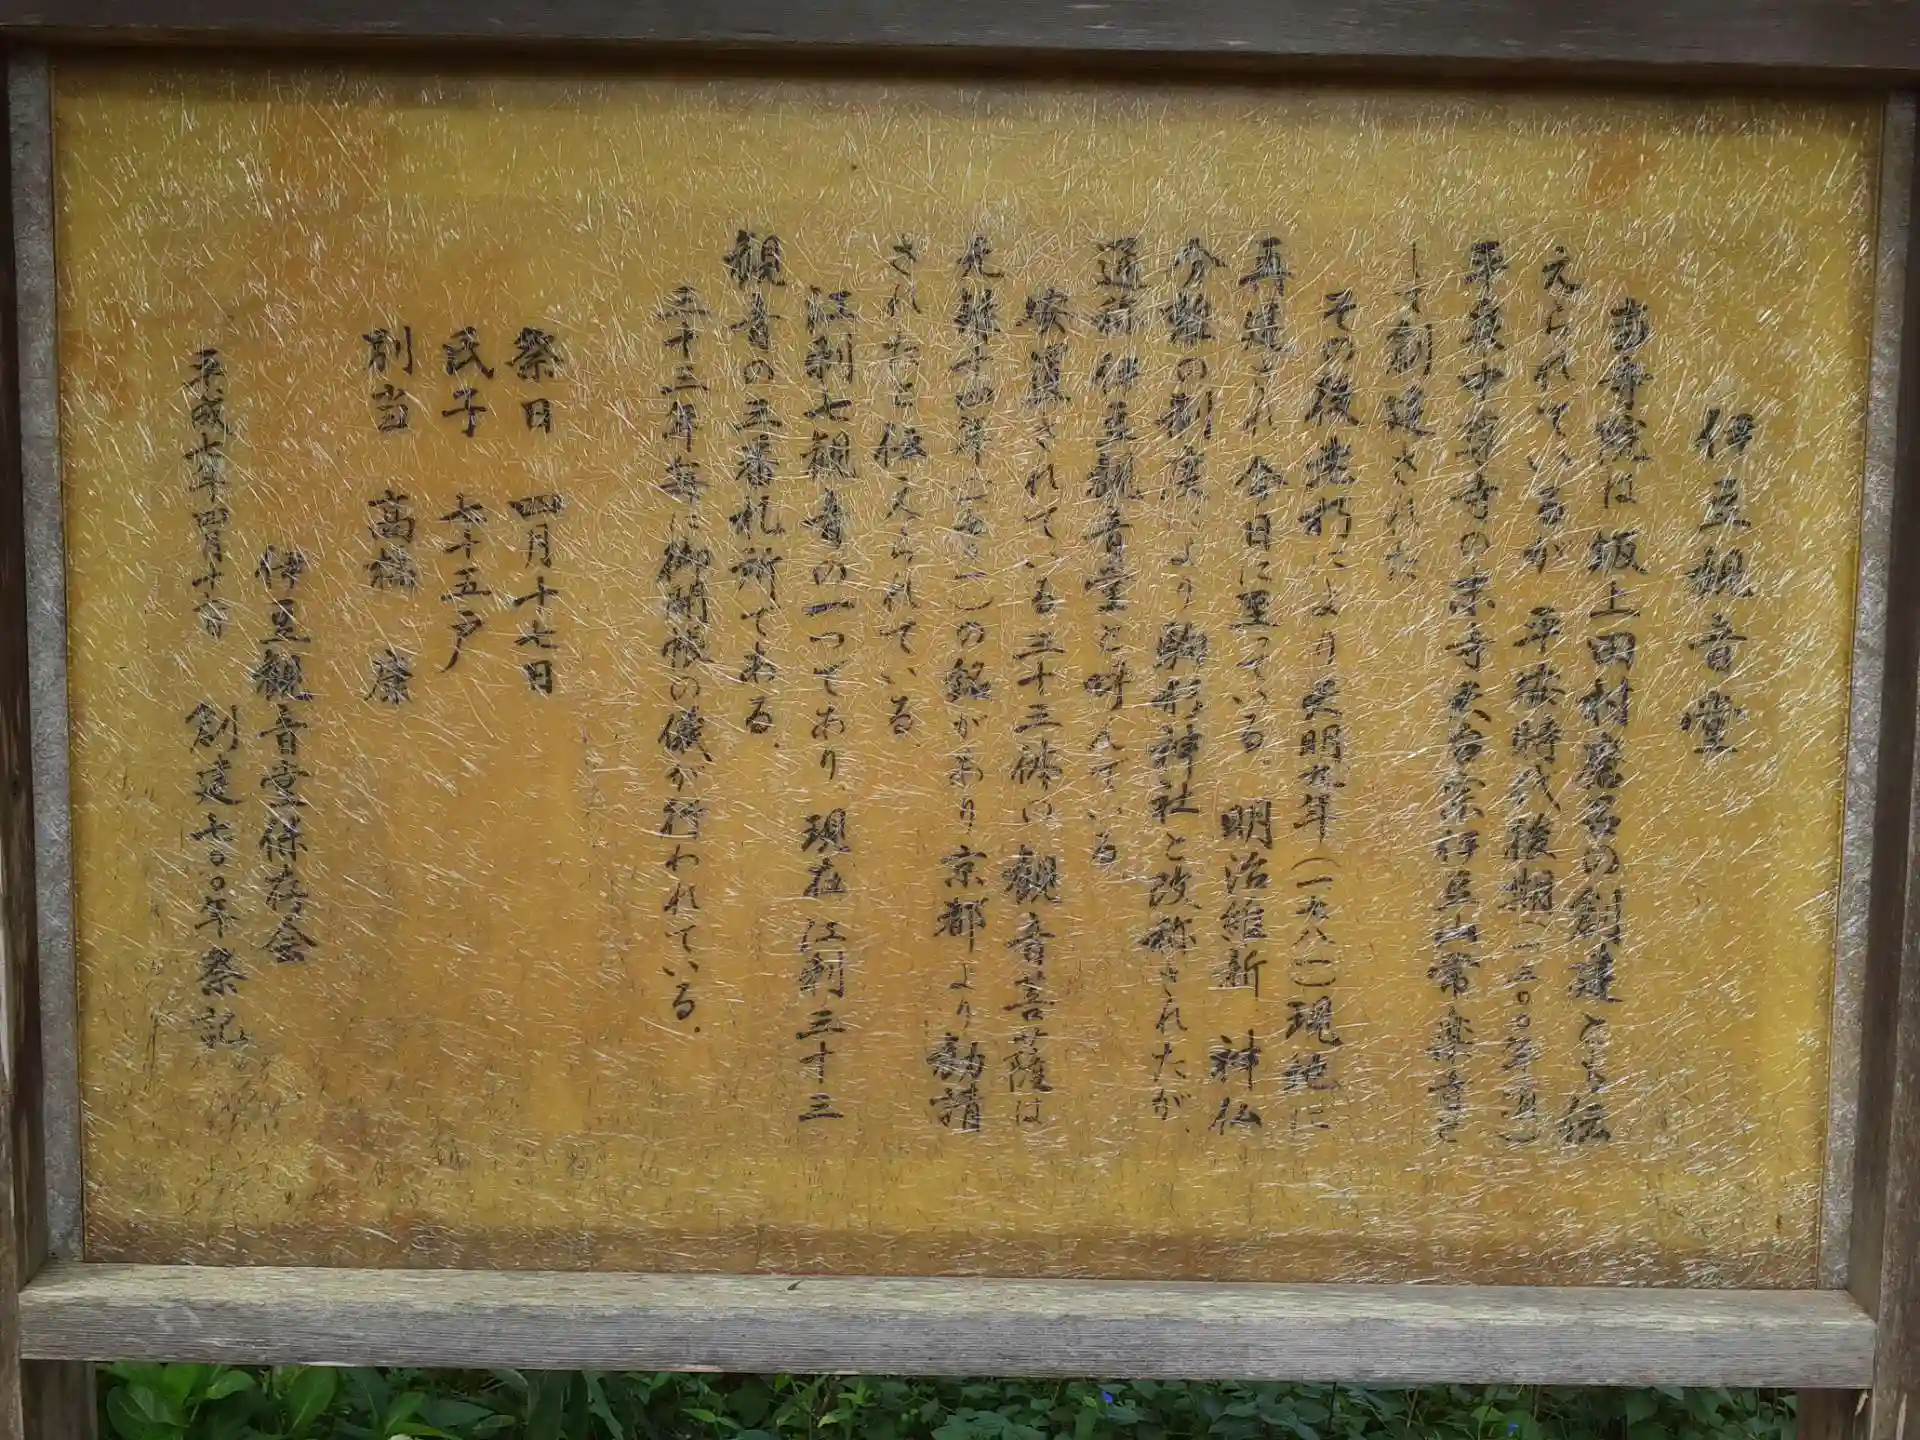 伊豆観音堂
当寺院は 坂上田村麿呂の創建とも伝
えられているが 平安時代後期(一三〇〇年頃)
平泉中尊寺の末寺天台宗伊豆山常楽寺と
して創建された
その後老朽により天明九年(一九八一)現地に
再建され今日に至っている。明治維新 神仏
分離の制度により駒形神社と改称されたが、
通称伊豆観音堂と呼んでいる
安置されている三十三体い観音菩薩は
元禄十四年(一七〇一)の銘があり京都より勧請
されたと伝えられている
江刺七観音の一つであり、現在江刺三十三
観音の三番札所である
三十三年毎に御開帳の儀が行われている.
祭日 四月十七日
氏子 七十五戸
別当 高橋 康
伊豆観音堂保存会
平成十年四月十六日 創建七〇〇年祭記